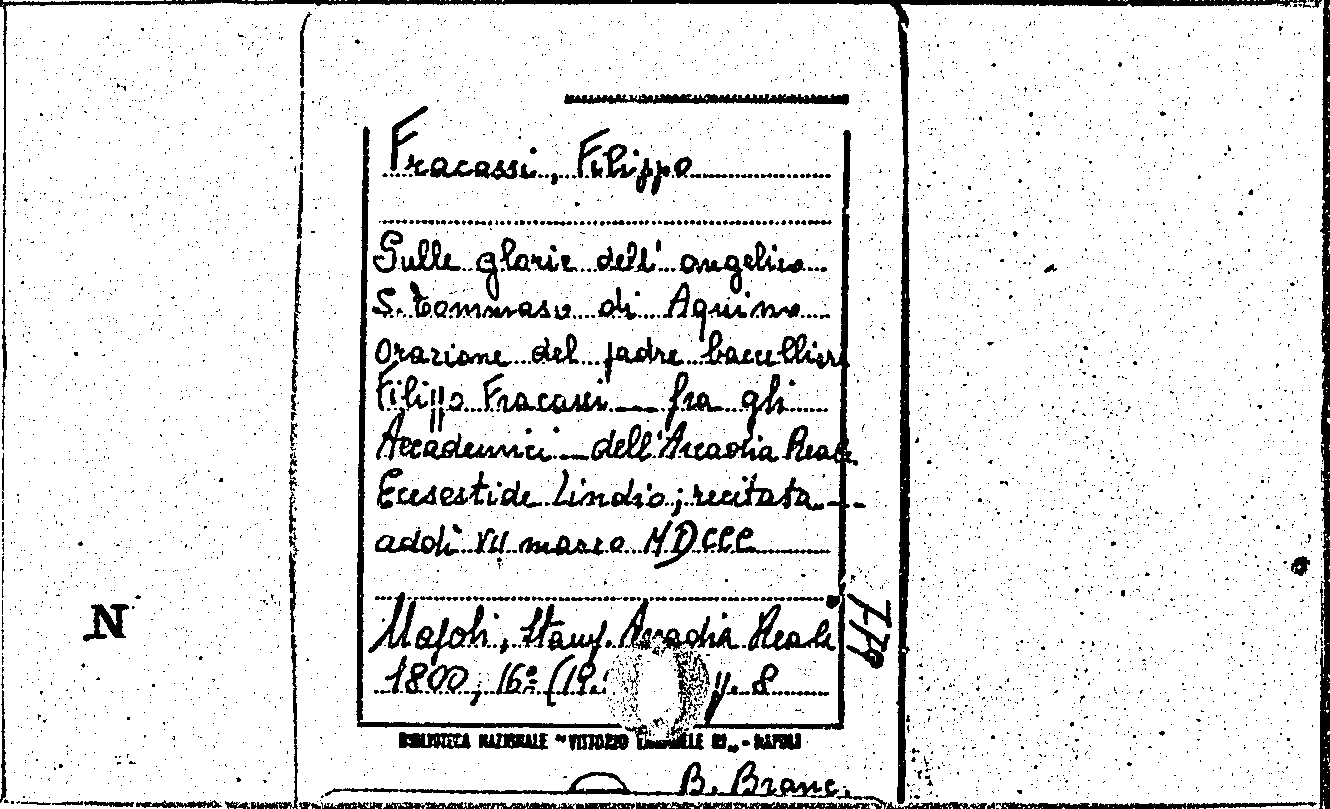 Fracassi, Filippo
Sulle glorie dell' angelico
S. Tommaso di Aquino
Orazione del padre baccelliere
Filippo Fracassi — fra gli
Accademici — dell'Arcadia Reale
Ecesestide Lindio; recitata —
addì VII marzo MDCCC
Napoli, Stamp. Arcadia Reale
1800, 16° (19. p. 8
779
BIBLIOTECA NAZIONALE "VITTORIO EMANUELE III" - NAPOLI
B. Branc.
N